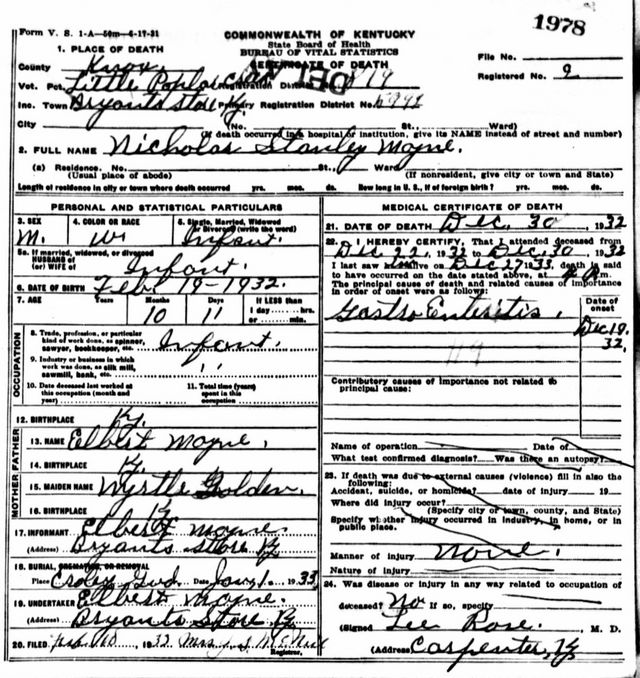 1978
Form V. S. 1-A—50m-6-17-31
COMMONWEALTH OF KENTUCKY
State Board of Health
BUREAU OF VITAL STATISTICS
CERTIFICATE OF DEATH
1. PLACE OF DEATH
County Knox
File No.
Vot. Pct. Little Poplar Registration District No. 819
Registered No. 9
Inc. Town Bryants Store Ky. Primary Registration District No.
City (No. St., Ward)
(If death occurred in a hospital or institution, give its NAME instead of street and number)
2. FULL NAME Nicholas Stanley Mayne.
(a) Residence. No. St., Ward
(Usual place of abode) (If nonresident, give city or town and State)
Length of residence in city or town where death occurred yrs. mos. ds. How long in U. S., if of foreign birth? yrs. mos. ds.
PERSONAL AND STATISTICAL PARTICULARS
3. SEX M. 4. COLOR OR RACE W 5. Single, Married, Widowed or Divorced (write the word) Infant.
5a. If married, widowed, or divorced
HUSBAND of
(or) WIFE of Infant.
6. DATE OF BIRTH Feb. 19-1932.
7. AGE Years Months 10 Days 11 If LESS than
1 day hrs.
or min.
OCCUPATION
8. Trade, profession, or particular
kind of work done, as spinner,
sawyer, bookkeeper, etc. Infant.
9. Industry or business in which
work was done, as silk mill,
sawmill, bank, etc. ''
10. Date deceased last worked at
this occupation (month and
year)
11. Total time (years)
spent in this
occupation
12. BIRTHPLACE Ky.
FATHER
13. NAME Elbert Mayne.
14. BIRTHPLACE Ky.
MOTHER
15. MAIDEN NAME Myrtle Golden.
16. BIRTHPLACE Ky
17. INFORMANT Elbert Mayne
(Address) Bryants Store Ky
18. BURIAL, CREMATION, OR REMOVAL
Place Croley Gvd. Date Jan. 1. 1933
19. UNDERTAKER Elbert Mayne.
(Address) Bryants Store Ky
20. FILED 10 1933 Mrs J. S. McNeil
Registrar.
MEDICAL CERTIFICATE OF DEATH
21. DATE OF DEATH Dec. 30, 1932
22. I HEREBY CERTIFY, That I attended deceased from
Dec 22, 1932 to Dec. 30, 1932
I last saw alive on Dec 27 1933, death is said
to have occurred on the date stated above, at m.
The principal cause of death and related causes of importance
in order of onset were as follows:
Date of
onset
Gastro Enteritis. Dec 19.
32.
119
Contributory causes of importance not related to
principal cause:
Name of operation Date of
What test confirmed diagnosis? Was there an autopsy?
23. If death was due to external causes (violence) fill in also the
following:
Accident, suicide, or homicide? date of injury 19
Where did injury occur?
(Specify city or town, county, and State)
Specify whether injury occurred in industry, in home, or in
public place.
Manner of injury None.
Nature of injury
24. Was disease or injury in any way related to occupation of
deceased? No If so, specify
(Signed Lee Rose. M. D.
(Address) Carpenter, Ky